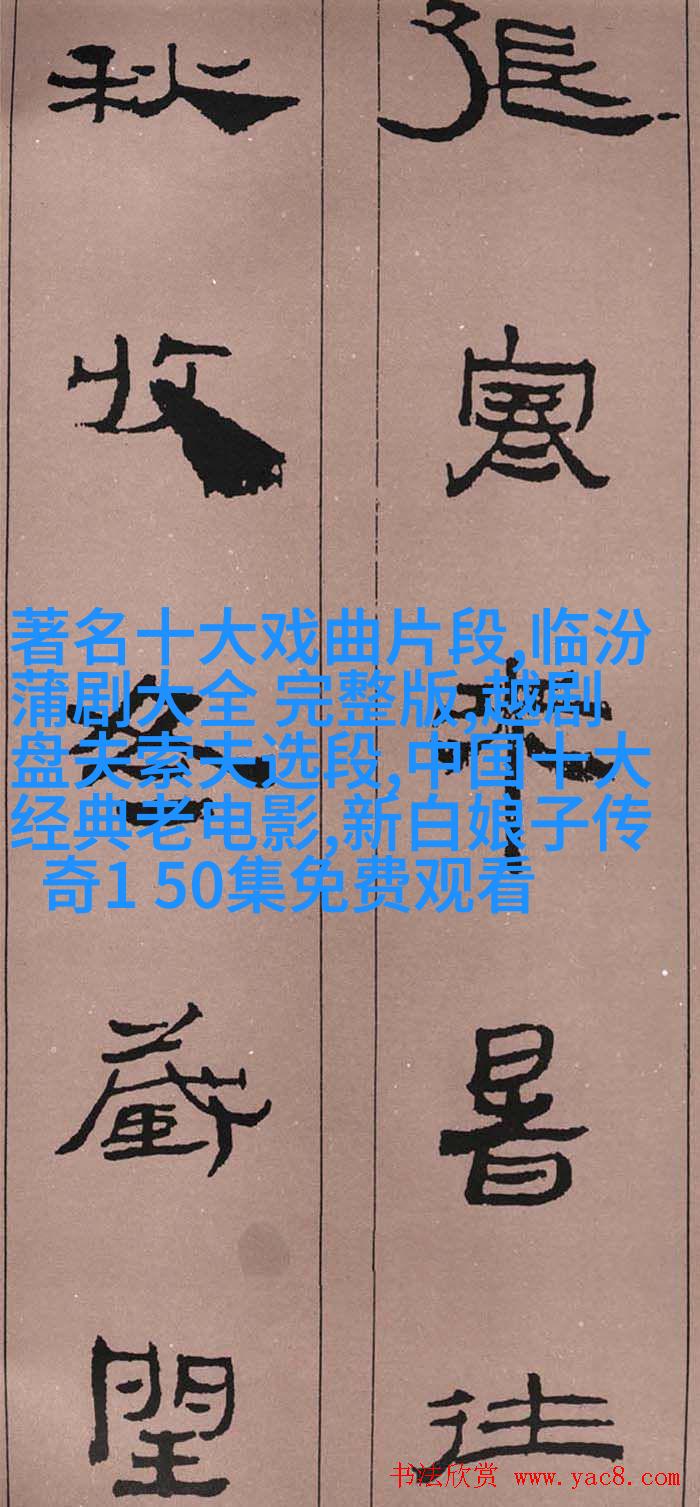 張寒来暑往
秋收冬藏閏
著名十大戏曲片段,临汾
蒲剧大全 完整版,越剧
盘夫索夫选段,中国十大
经典老电影,新白娘子传
奇1 50集免费观看
书法欣赏 www.yac8.com